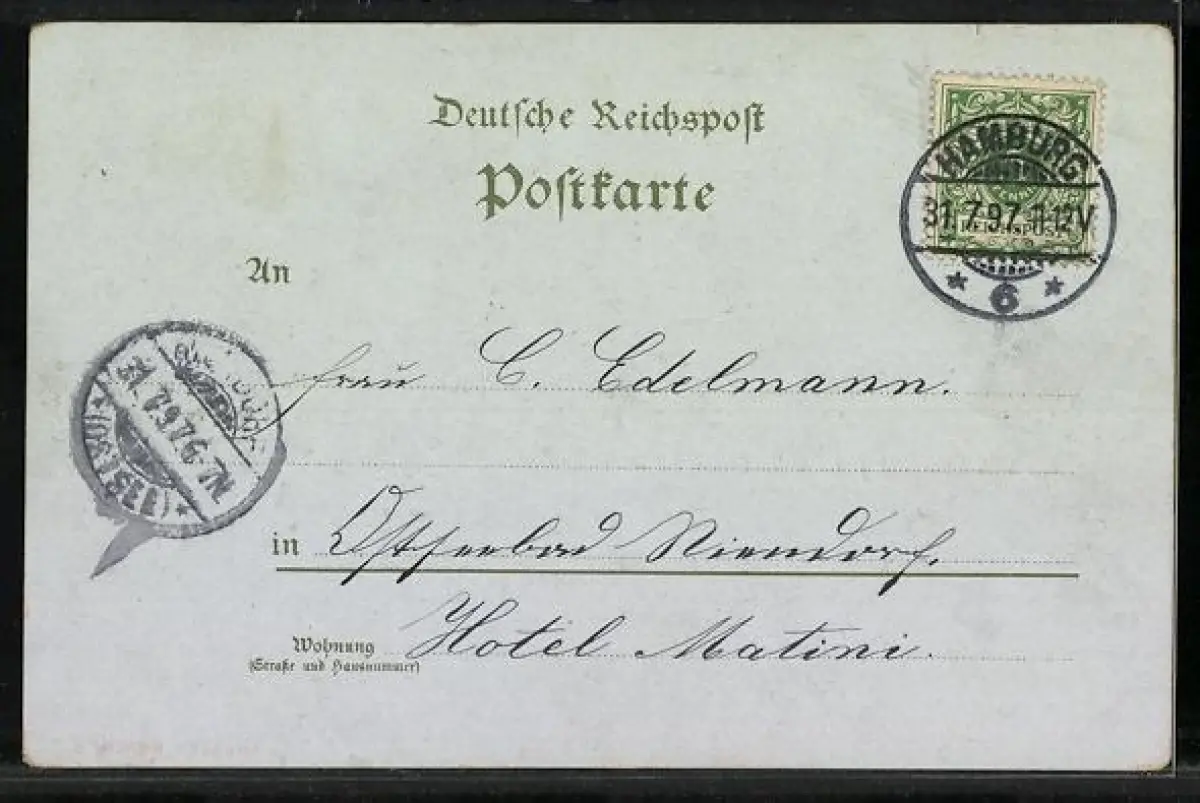 Deutsche Reichspost
Postkarte
HAMBURG
31.7.97. 11-12V
REICHSPOST
* 6 *
An
Frau C. Edelmann.
31.7.97. 6-7N
(OSTSEE) *
in Ostseebad Niendorf.
Wohnung Hotel Matini.
(Straße und Hausnummer)